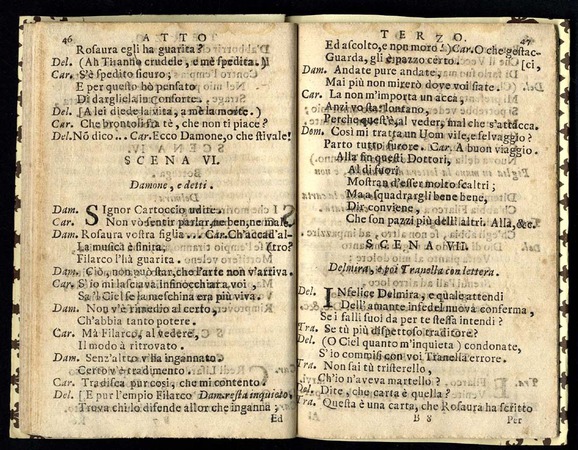 46 ATTO
Rosaura egli ha guarita?
Del. (Ah Tiranno crudele, e me spedita.)
Car. S'è spedito sicuro;
E per questo hò pensato
Di dargliela in consorte.
Del. [A lei diede la vita, a mè la morte.)
Car. Che brontoli frà tè, che non ti piace?
Del. Nò dico... Car. Ecco Damone, o che stivale!
SCENA VI.
Damone, e detti.
Dam. SIgnor Cartoccio udite.
Car. Non vò sentir parlar, ne ben, ne male.
Dam. Rosaura vostra figlia... Car. Ch'accad'al-
La musica è finita; [tro?
Filarco l'hà guarita.
Dam. Ciò, non può star, che l'arte non v'arriva.
Car. S'io mi lasciava infinocchiar a voi,
Sa'l Ciel se la meschina era più viva.
Dam. Non v'è rimedio al certo,
Ch'abbia tanto potere.
Car. Mà Filarco, al vedere,
Il modo à ritrovato.
Dam. Senz'altro v'ha ingannato.
Certo v'è tradimento.
Car. Tradisca pur così, che mi contento.
Del. [E pur l'empio Filarco Dam. resta inquieto,
Trova chi lo difende allor che inganna;
Ed
TERZO. 47
Ed ascolto, e non moro!) Car. O che gestac-
Guarda, gli è pazzo certo. [ci,
Dam. Andate pure andate,
Mai più non mirerò dove voi state.
Car. La non m'importa un acca,
Anzi vò star lontano,
Perche quest'è, al veder, mal che s'attacca.
Dam. Così mi tratta un Uom vile, e selvaggio?
Parto tutto furore. Car. A buon viaggio.
Alla fin questi Dottori,
Al di fuori
Mostran d'esser molto scaltri;
Ma a squadrargli bene bene,
Dir conviene,
Che son pazzi più dell'altri. Alla, &c.
SCENA VII.
Delmira, e poi Trapella con lettera.
Del. INfelice Delmira, e quale attendi
Dell'amante infedel nuova conferma,
Se i falli suoi da per te stessa intendi?
Tra. Se tù più dispettoso traditore?
Del. (O Ciel quanto m'inquieta) condonate,
S'io commisi con voi Tranella errore.
Tra. Non fai tù tristerello,
Ch'io n'aveva martello?
Del. Dite, che carta è quella?
Tra. Questa è una carta, che Rosaura hà scritto
B 8 Per